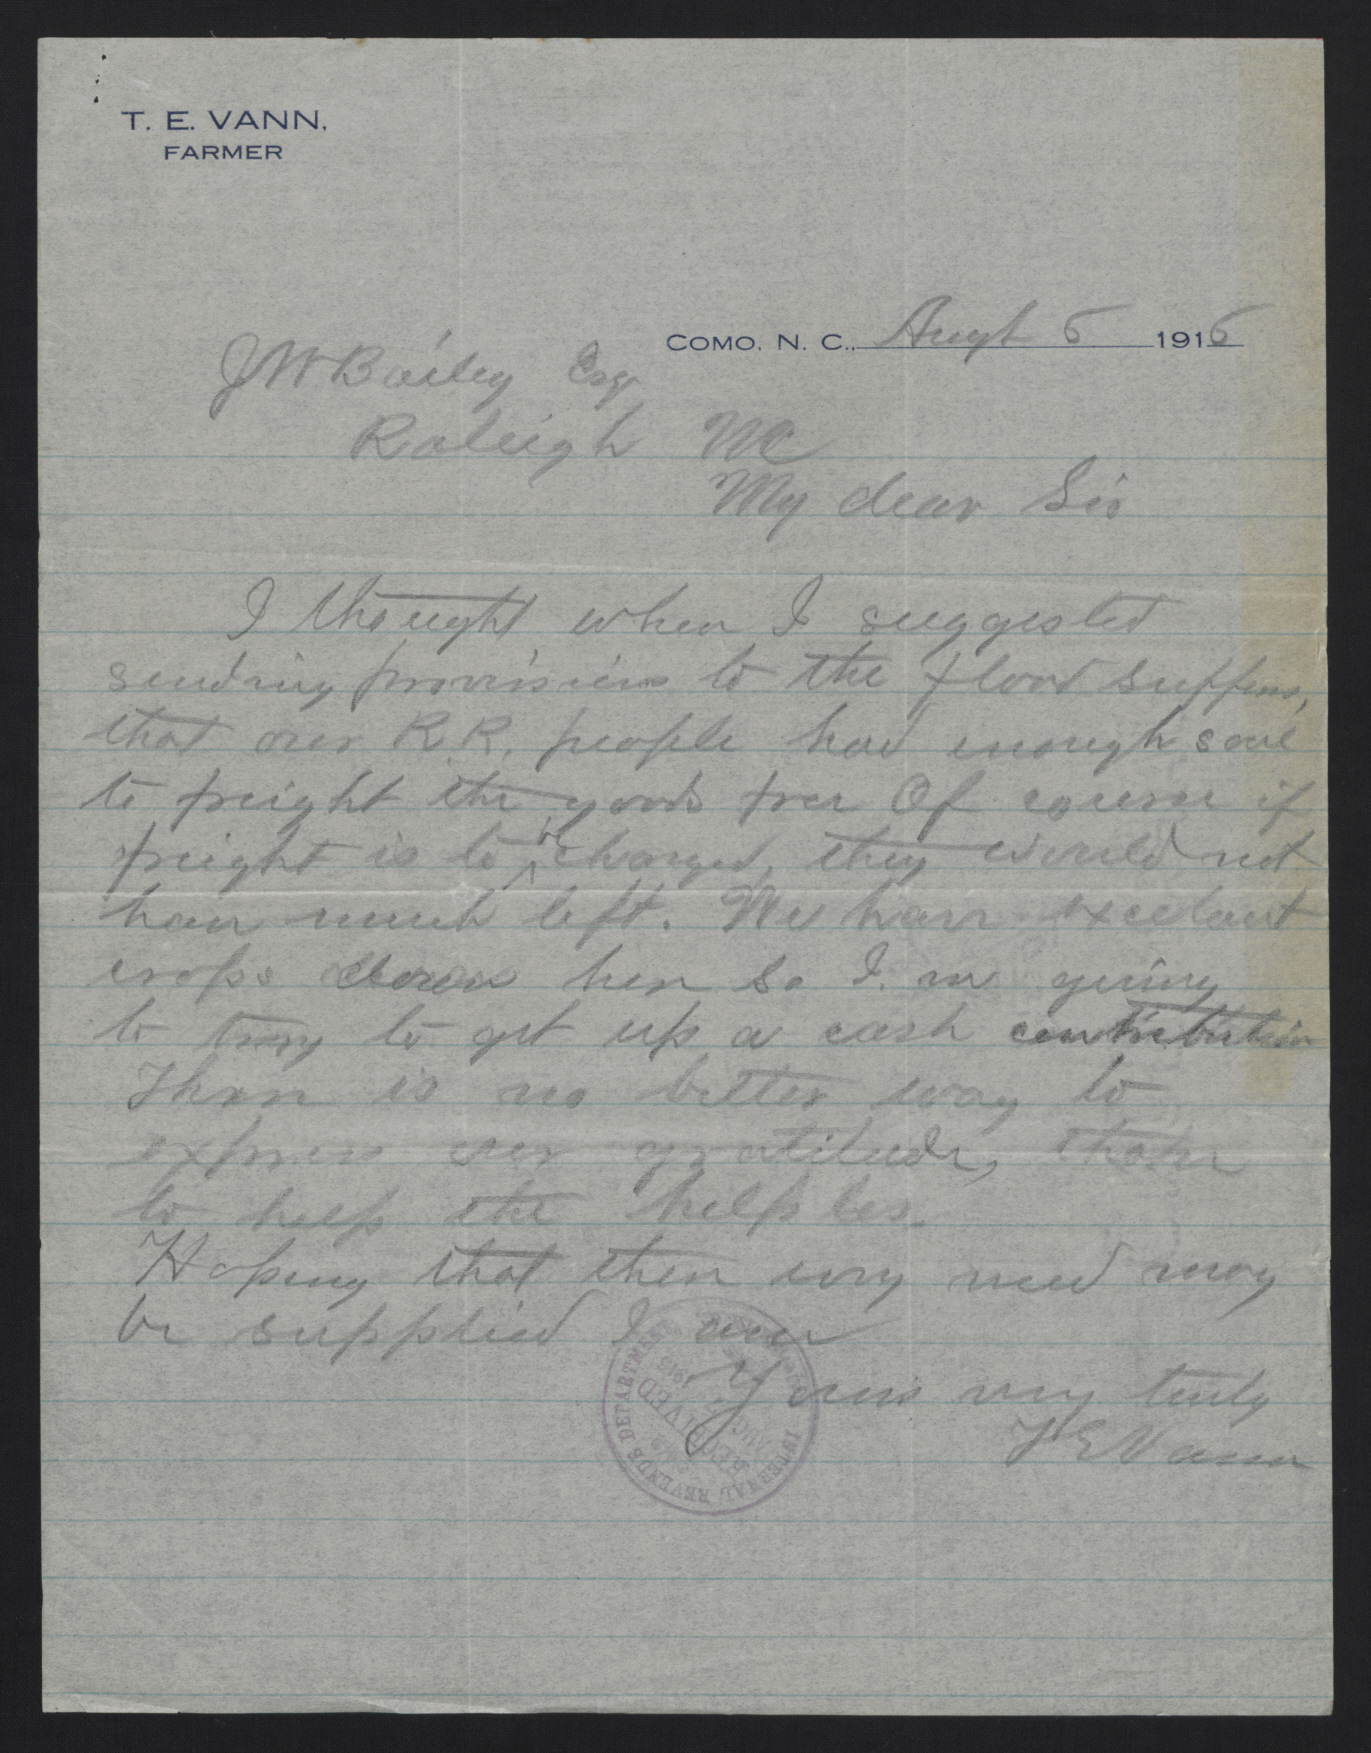 T. E. VANN,
FARMER
COMO, N. C., Augt 5 1916
J W Bailey Esq
Raleigh NC
My dear Sir
I thought when I suggested
sending provisions to the flood suffers,
that our R.R. people had enough soul
to freight the goods free Of course if
freight is to be charged, they would not
have much left. We have excelant
crops down here so I am going
to try to get up a cash contribution
There is no better way to
express our gratitude, than
to help the helples.
Hoping that their every need may
be supplied I am
Yours very truly
T E Vann
INTERNAL REVENUE DEPARTMENT
RECEIVED
AUG
1916